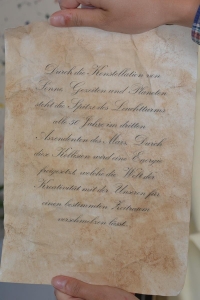 Durch die Konstellation von
Sonne, Gezeiten und Planeten
steht die Spitze des Leuchtturms
alle 50 Jahre im dritten
Aszendenten des Mars. Durch
diese Kollision wird eine Energie
freigesetzt, welche die Welt der
Kreativität mit der Unseren für
einen bestimmten Zeitraum
verschmelzen lässt.